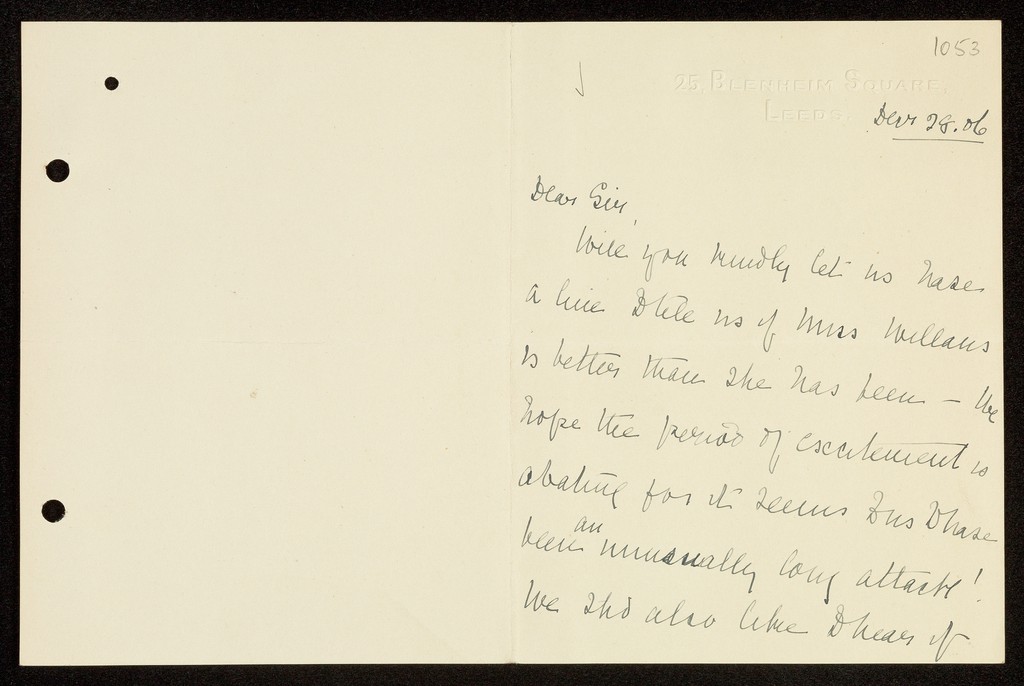 1053
25, BLENHEIM SQUARE,
LEEDS.
Decr 28. 06
Dear Sir,
Will you kindly let us have
a line to tell us if Miss Willans
is better than she has been – We
hope the period of excitement is
abating for it seems to us to have
been an unusually long attack!
We shd also like to hear if